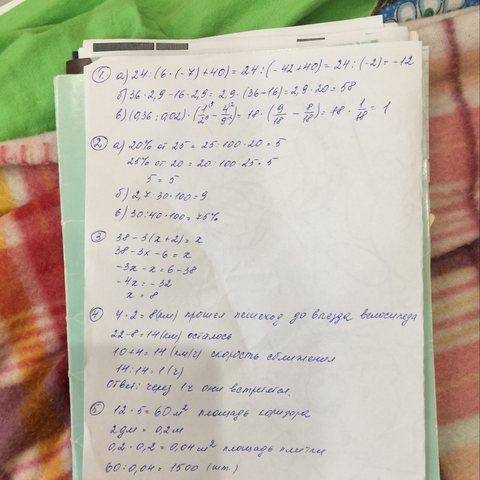 1 а) 24 : (6 · (-7) + 40) = 24 : (-42 + 40) = 24 : (-2) = -12
б) 36 · 2,9 - 16 · 2,9 = 2,9 · (36 - 16) = 2,9 · 20 = 58
в) (0,36 : 0,02) · (1/2 - 4/9) = 18 · (9/18 - 8/18) = 18 · 1/18 = 1
2 а) 20% от 25 = 25 : 100 · 20 = 5
25% от 20 = 20 : 100 · 25 = 5
5 = 5
б) 2,7 : 30 · 100 = 9
в) 30 : 40 · 100 = 75%
3 38 - 3(x + 2) = x
38 - 3x - 6 = x
-3x - x = 6 - 38
-4x = -32
x = 8
4 4 · 2 = 8 (км) прошел пешеход до въезда велосипеда
22 - 8 = 14 (км) осталось
10 + 4 = 14 (км/ч) скорость сближения
14 : 14 = 1 (ч)
Ответ: через 1 ч они встретятся.
5 12 · 5 = 60 м² площадь коридора
2 дм = 0,2 м
0,2 · 0,2 = 0,04 м² площадь плитки
60 : 0,04 = 1500 (шт.)